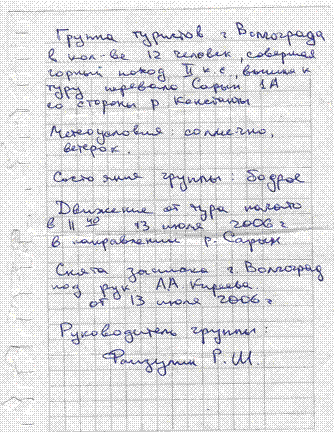 Группа туристов г Волгограда
в кол-ве 12 человек, совершая
горный поход II к.с., вышли к
туру перевала Сарын 1А
со стороны р Константы
Метеоусловия: солнечно,
ветерок.
Состояние группы: бодрое
Движение от тура начато
в 11 40 13 июля 2006 г
в направлении р. Сарын
Снята записка г. Волгоград
под рук АА Киреева.
от 13 июля 2006 г
Руководитель группы:
Файзулин Р. Ш.